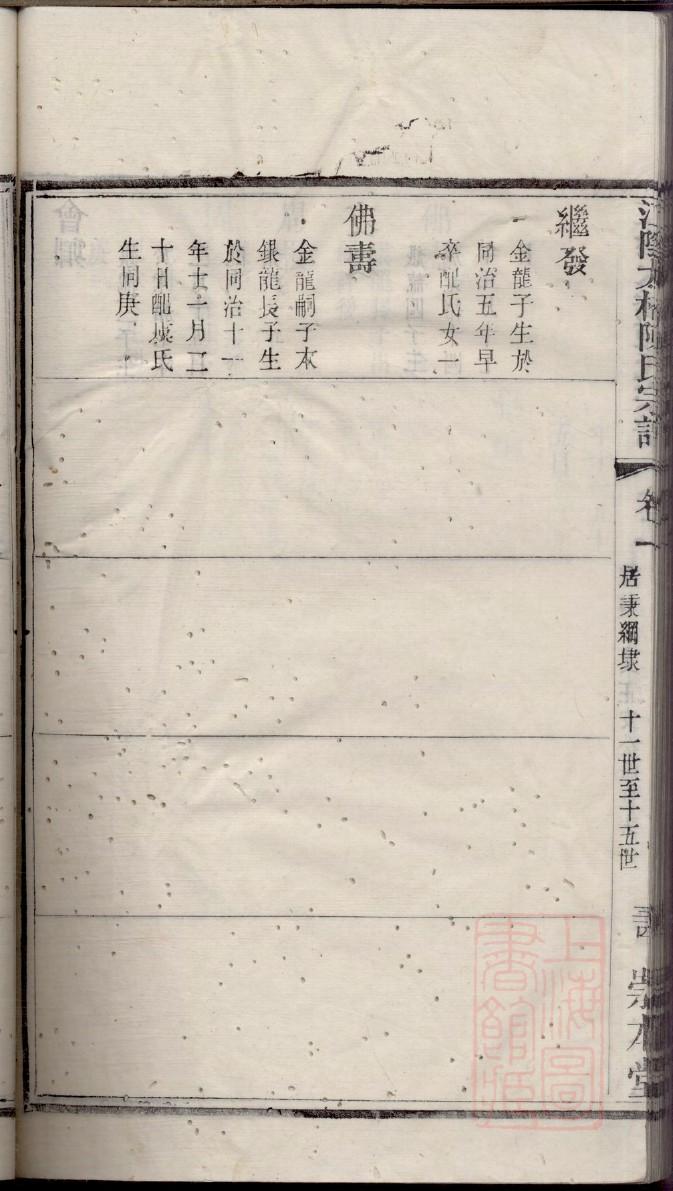 江陰太橋陳氏宗譜 卷一 居秉綱埭 十一世至十五世 崇本堂
繼發
金龍子生於
同治五年早
卒配氏女一
佛壽
金龍嗣子本
銀龍長子生
於同治十一
年十一月二
十日配氏
生同庚
上海圖
書館藏